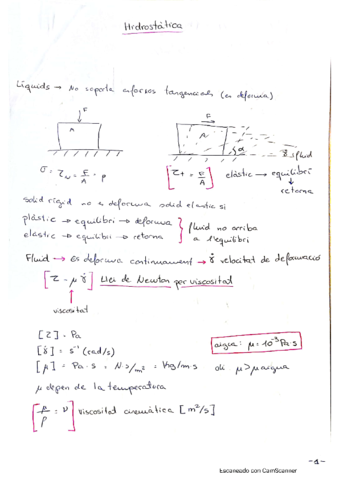 Hidrostática
Líquids → No soporta esforços tangencials (es deforma)
F
F
A
A
α
γ̇ fluid
σ = τN = F/A = p
[τt = F/A]
elàstic → equilibri
retorna
sòlid rígid no es deforma sòlid elàstic sí
plàstic → equilibri → deforma
elàstic → equilibri → retorna
fluid no arriba
a l'equilibri
Fluid → es deforma continuament → γ̇ velocitat de deformació
[τ = μ γ̇] Llei de Newton per viscositat
viscositat
[τ] = Pa
[γ̇] = s⁻¹ (rad/s)
aigua: μ = 10⁻³ Pa·s
[μ] = Pa·s = N·s/m² = kg/m·s oli μ > μaigua
μ depen de la temperatura
[μ/ρ = ν] viscositat cinemàtica [m²/s]
-1-
Escaneado con CamScanner